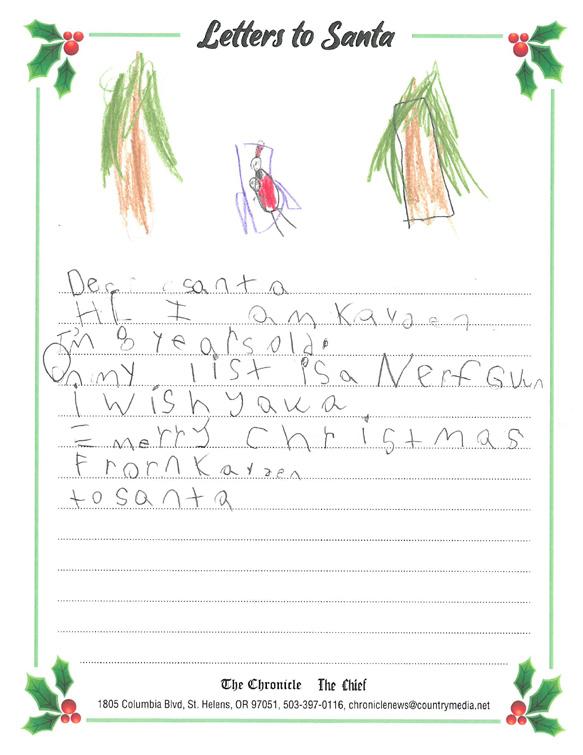 Letters to Santa
Dear santa
HI I am Kavzen
I'm 8 years old.
On my list is a Nerf Gun
i wish yaua
= merry christmas
From Kayzen
to santa
The Chronicle The Chief
1805 Columbia Blvd, St. Helens, OR 97051, 503-397-0116, chroniclenews@countrymedia.net